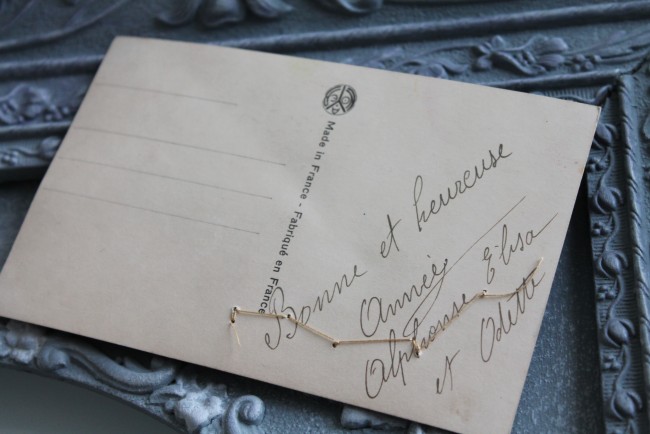 Made in France - Fabriqué en France
Bonne et heureuse
Année
Alphonse Elisa
et Odette